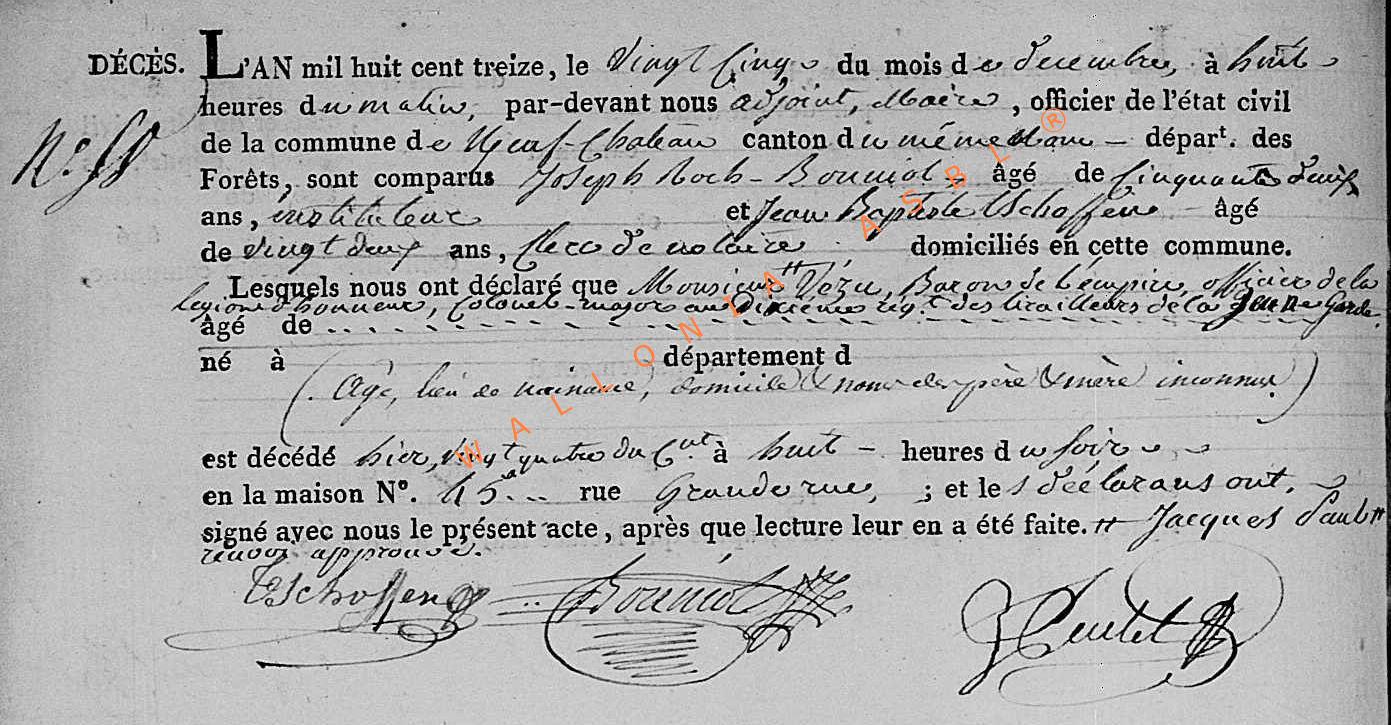 DÉCÈS. L'AN mil huit cent treize, le vingt cinq du mois de decembre, à huit
heures du matin, par-devant nous adjoint, Maire, officier de l'état civil
de la commune de Neuf-Chateau canton du même nom – dépar<sup>t</sup>. des
Forêts, sont comparus Joseph Roch Bouniol, âgé de Cinquante deux
ans, instituteur et Jean Baptiste Tschoffen âgé
de vingt deux ans, Clerc de notaire domiciliés en cette commune.
Lesquels nous ont déclaré que Monsieur # Vézu, Baron de L'empire, officier de la
legion d'honneur, Colonel-major au Dixieme rég.t des tirailleurs de la Jeune Garde.
âgé de
né à département d
(. Age, lieu de naissance, domicile & noms des père & mère inconnus.)
est décédé hier, vingt quatre du C.nt à huit – heures du soir
en la maison N°. 45 ... rue Grande rue, ; et les déclarans ont,
signé avec nous le présent acte, après que lecture leur en a été faite. # Jacques Paul #
renvoi approuvé.
Tschoffen Bouniol
WALLONIA ASBL ®